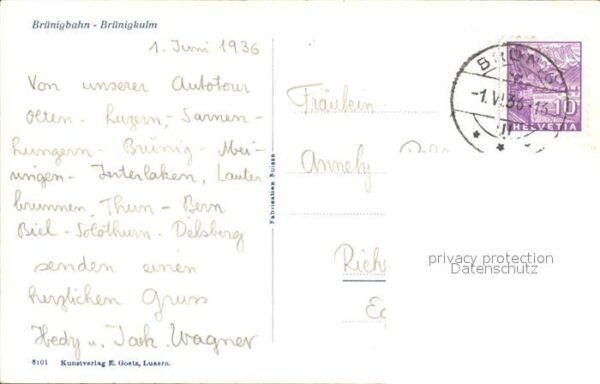 Brünigbahn - Brünigkulm
1. Juni 1936
Von unserer Autotour
Olten - Luzern, Sarnen -
Lungern - Brünig - Mei-
ringen - Interlaken, Lauter
brunnen, Thun - Bern
Biel - Solothurn. Delsberg
senden einen
herzlichen Gruss
Hedy u. Jack. Wagner
5101 Kunstverlag E. Goetz, Luzern.
Fabrication Suisse
BRÜNIG
-1.VI.36-
10
HELVETIA
Fräulein
Annely
privacy protection
Datenschutz